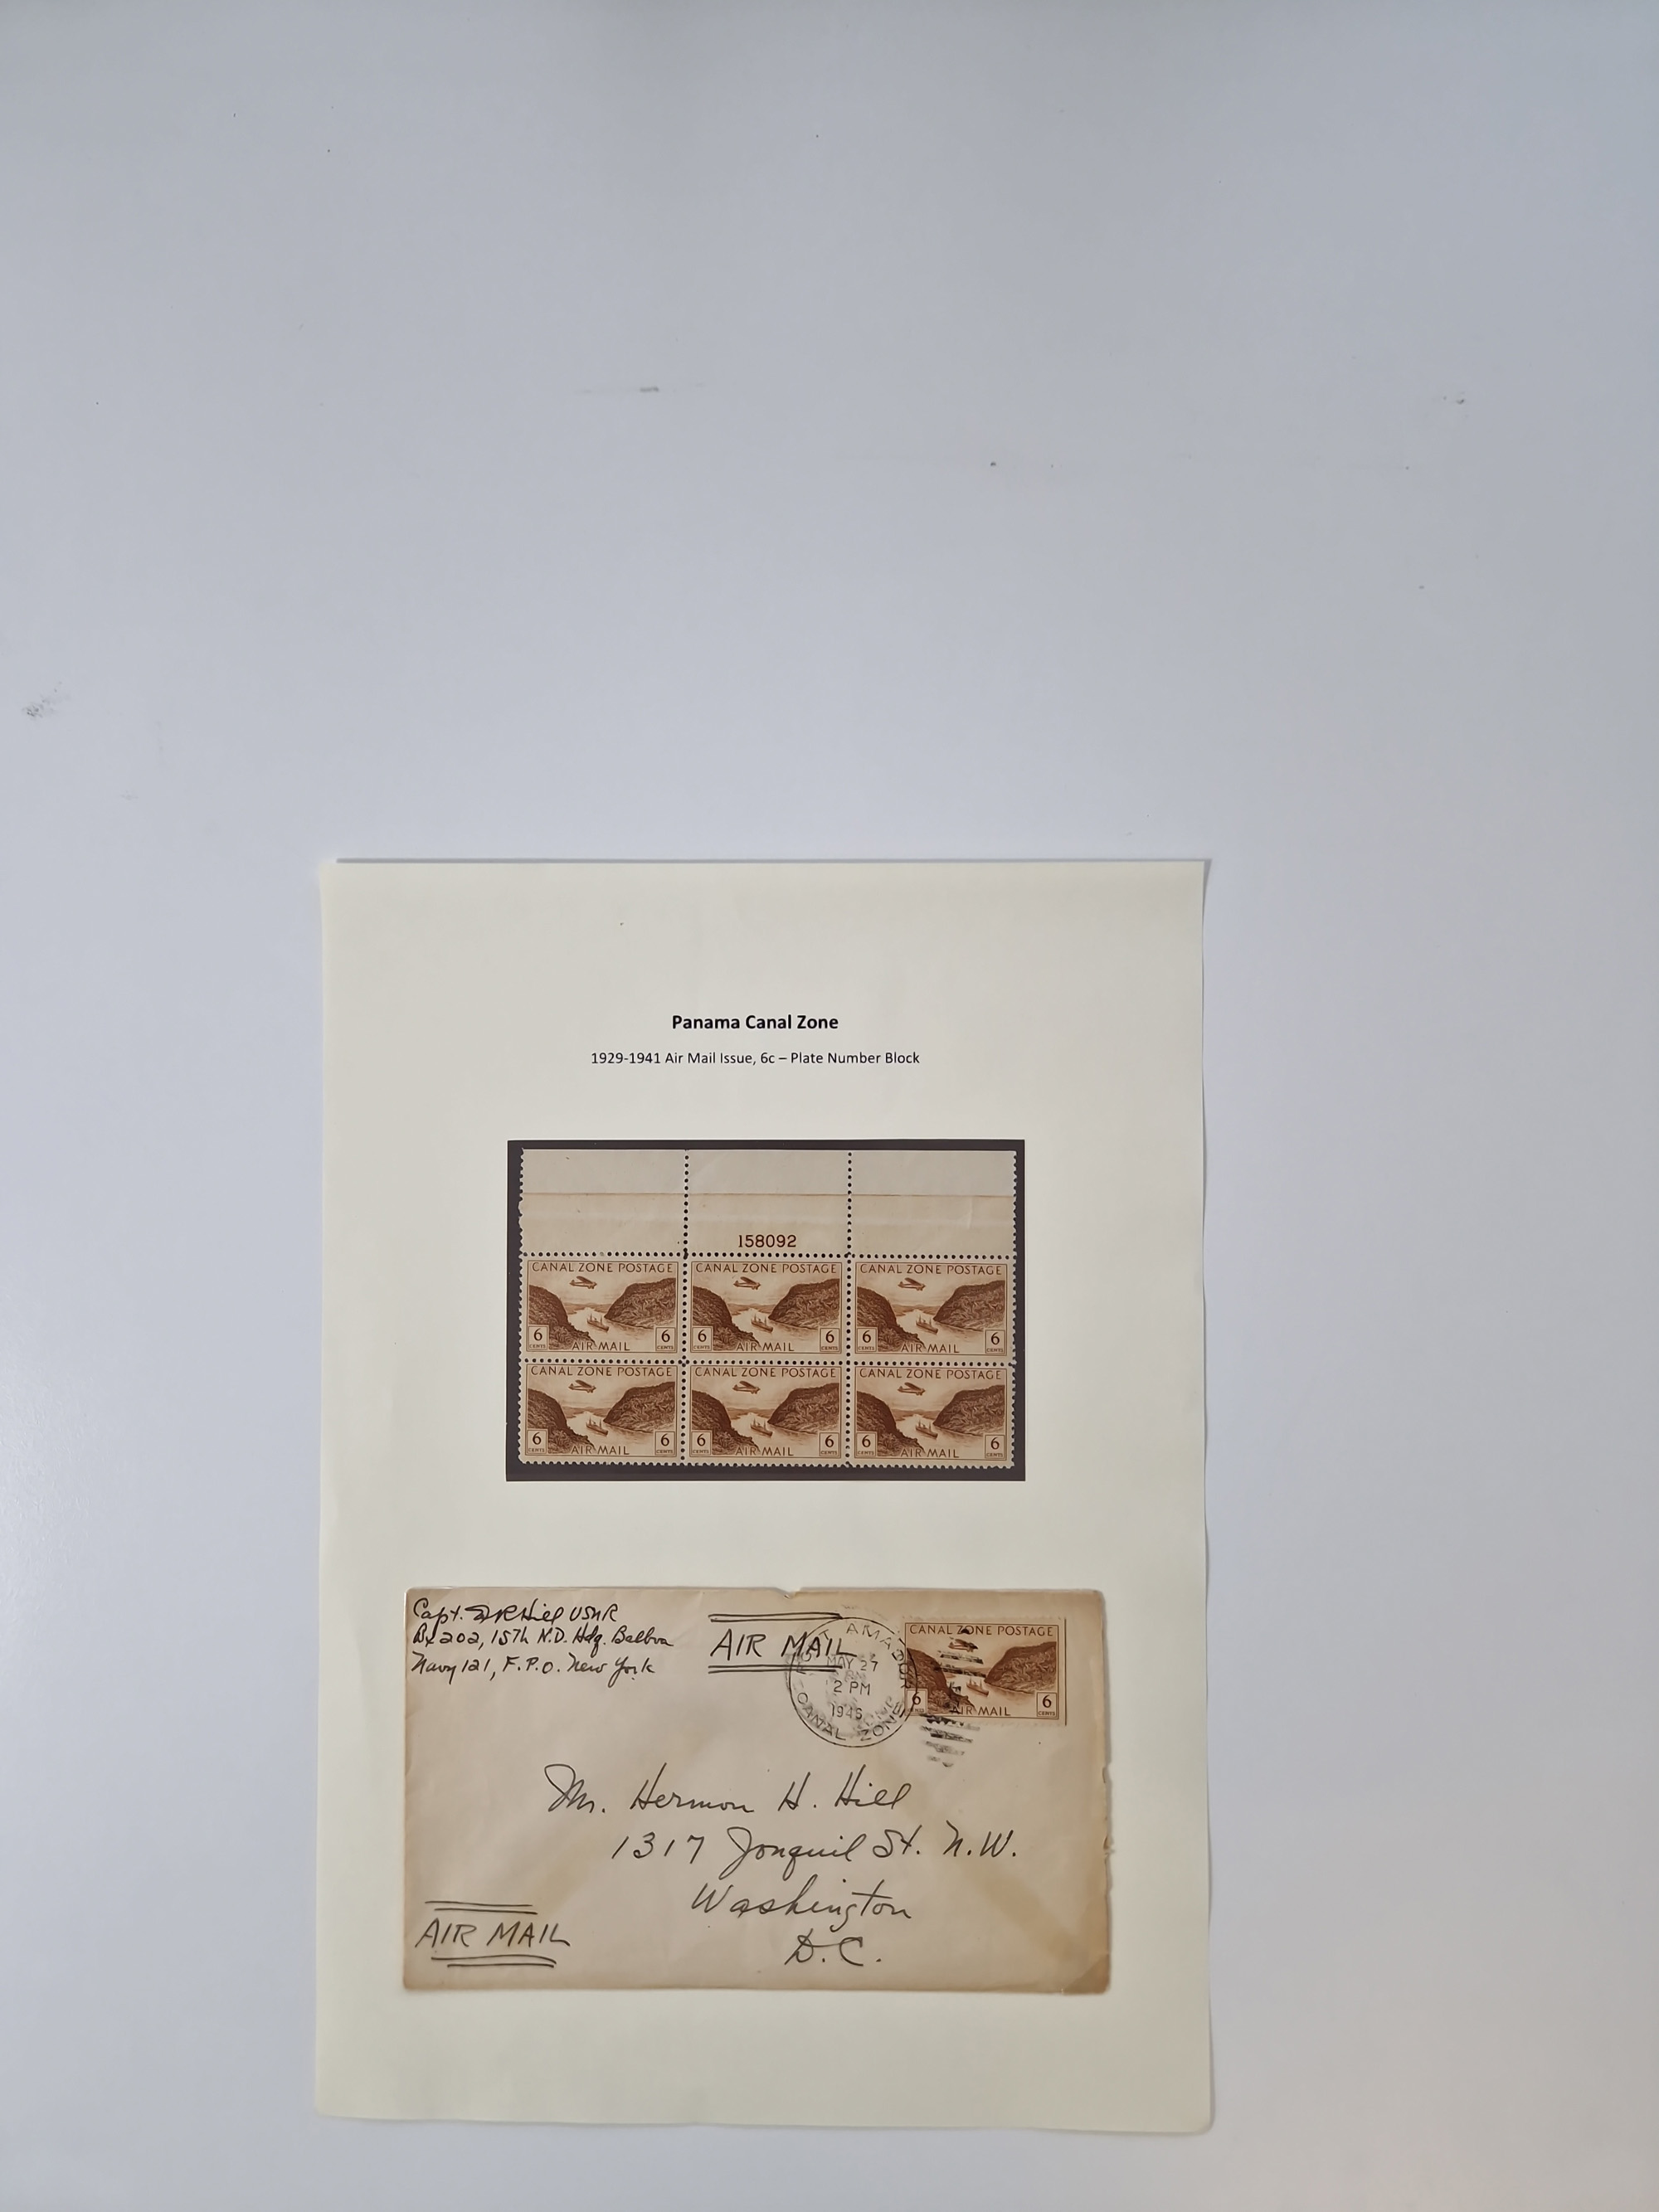 Panama Canal Zone
1929-1941 Air Mail Issue, 6c – Plate Number Block
158092
CANAL ZONE POSTAGE CANAL ZONE POSTAGE CANAL ZONE POSTAGE
6 CENTS AIR MAIL 6 CENTS 6 CENTS AIR MAIL 6 CENTS 6 CENTS AIR MAIL 6 CENTS
CANAL ZONE POSTAGE CANAL ZONE POSTAGE CANAL ZONE POSTAGE
6 CENTS AIR MAIL 6 CENTS 6 CENTS AIR MAIL 6 CENTS 6 CENTS AIR MAIL 6 CENTS
Capt. Hill USNR
Bx 202, 15th N.D. Hdq. Balboa
Navy 121, F.P.O. New York
AIR MAIL
AMADOR
MAY 27
2 PM
1946
CANAL ZONE
CANAL ZONE POSTAGE
6 AIR MAIL 6 CENTS
Mr. Hermon H. Hill
1317 Jonquil St. N.W.
Washington
D.C.
AIR MAIL